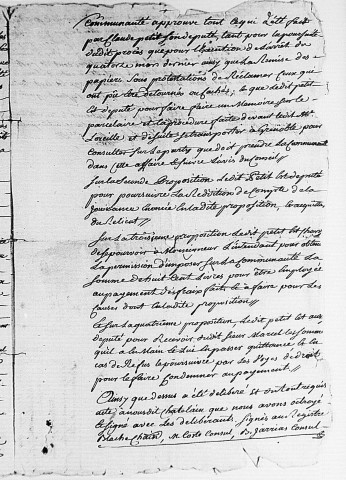 communauté approuve tout ce qui a été fait
par Claude petit son deputé, tant pour la poursuitte
dudit procès que pour l'execution de l'arrest du
quatorze mars dernier ainsy que la Remise des
papiers. Sous protestations de Reclamer Ceux qui
ont pu être detournés ou cachés; le que ledit petit
est deputé pour faire faire un memoire sur le
parcelaire et la procedure faite devant led. Mr
et de se transporter a Grenoble pour
consulter Sur le party que doit prendre la Communauté
dans cette affaire & suivre l'avis du Conseil //
Sur la Seconde Proposition ledit Petit est deputé
pour poursuivre la Reddition de Compte de la
énoncée en ladite proposition, le
du Relicat //
Sur La troisieme proposition ledit petit est chargé
de se pourvoir à Monseigneur l'intendant pour obtenir
La permission d'imposer sur La Communauté La
Somme de huit Cent Livres pour être employée
au payement des frais faits & à faire pour les
Causes dont en ladite proposition //
Et sur La quatrieme proposition, ledit petit est aussy
deputé pour Recevoir dudit sieur Marcel les Sommes
qu'il a en la Main & Lui En passer quittance & en
cas de Refus le poursuivre par les Voyes de Droit
pour le faire Condamner au payement //
Ainsy que dessus a été deliberé et du tout requis
acte à nous dit Chatelain que nous avons octroyé
& Signé avec Les deliberants. Signés au Registre
Consul, B. Jarrias Consul